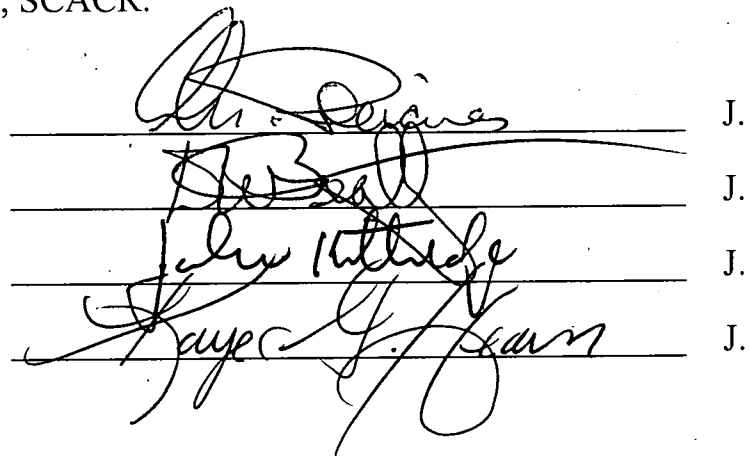 , SCACR.
J.
J.
John Kittredge J.
Kaye G. Hearn J.